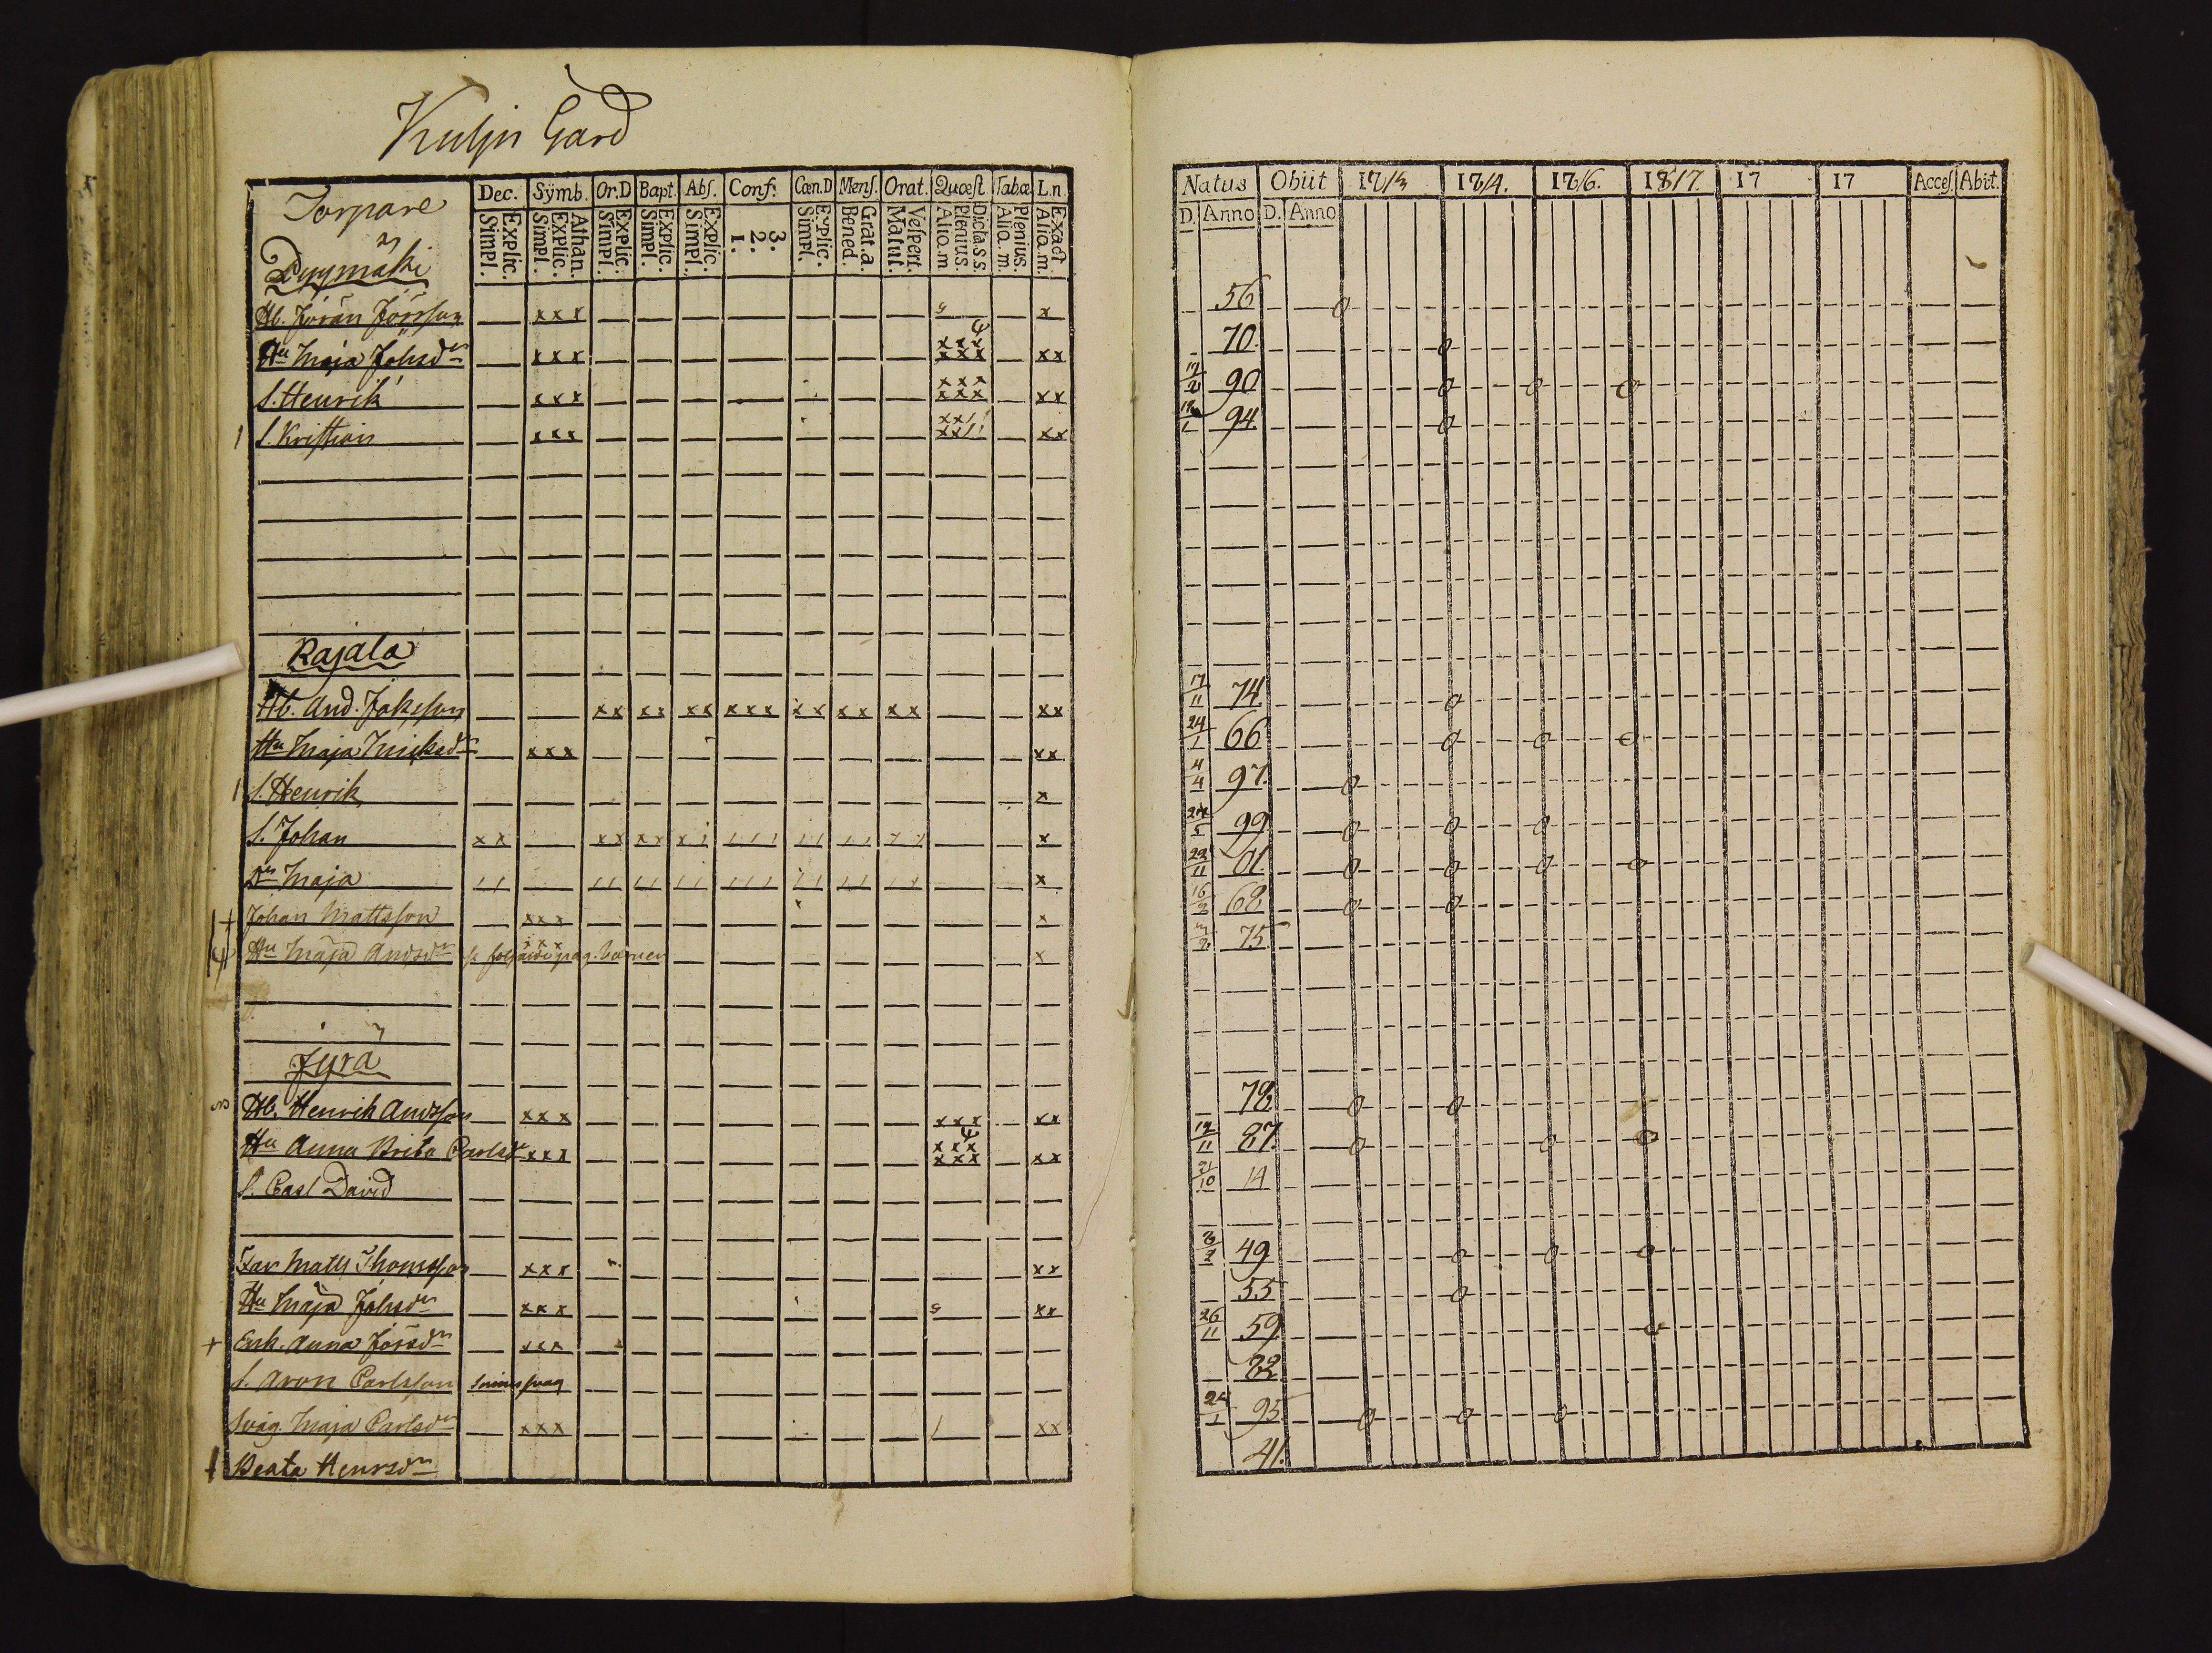 Gård
Torpare
Dec. Symb. Or.D Bapt. Abſ. Conf: Cœn.D Menſ. Orat. Quœſt Tabæ L.n.
Explic. Simpl. Athan. Explic. Simpl. Explic. Simpl. Explic. Simpl. Explic. Simpl. 3. 2. 1. Explic. Simpl. Grat.a. Bened. Veſpert. Matut. Dicta.S.S. Plenius Aliq.m Plenius. Aliq.m. Exact Aliq.m.
Natus Obiit 1713 1714. 1716. 1817. 17 17 Acceſ. Abit.
D. Anno D. Anno
Pyymäki
Hb. Jöran Jörsson xxx x 56
Hu Maja Johsdr xxx xxx xxx xx 70.
S. Henrik xxx xxx xxx xx 17/2 90
S. Kristian xxx xx 94
Rajala
Hb. And. Jakosson xx xx xx xxx xx xx xx xx 17/11 74.
Hu Maja xxx xx 24/1 66
S. Henrik x 4/4 97.
S. Johan xx xx xx x 24/5 99
Dr Maja x 01.
Johan Mattsson xxx x 16/2 68
Hu Maja Andsdr xxx x 75
Jyrä
Hb. Henrik Andsson xxx xxx xx 78
Hu Anna Brita Carlsdr xxx xxx xxx xx 87.
S. Carl David 21/10 14
Far Matts Thomsson xxx xx 49
Hu Maja Johsdr xxx xx 55
Enk. Anna Jörsdr xxx 26/11 59
S. Aron Carlsson sinnessvag 82
Sväg. Maja Carlsdr xxx xx 24/1 95
Beata Henrsdr 41.